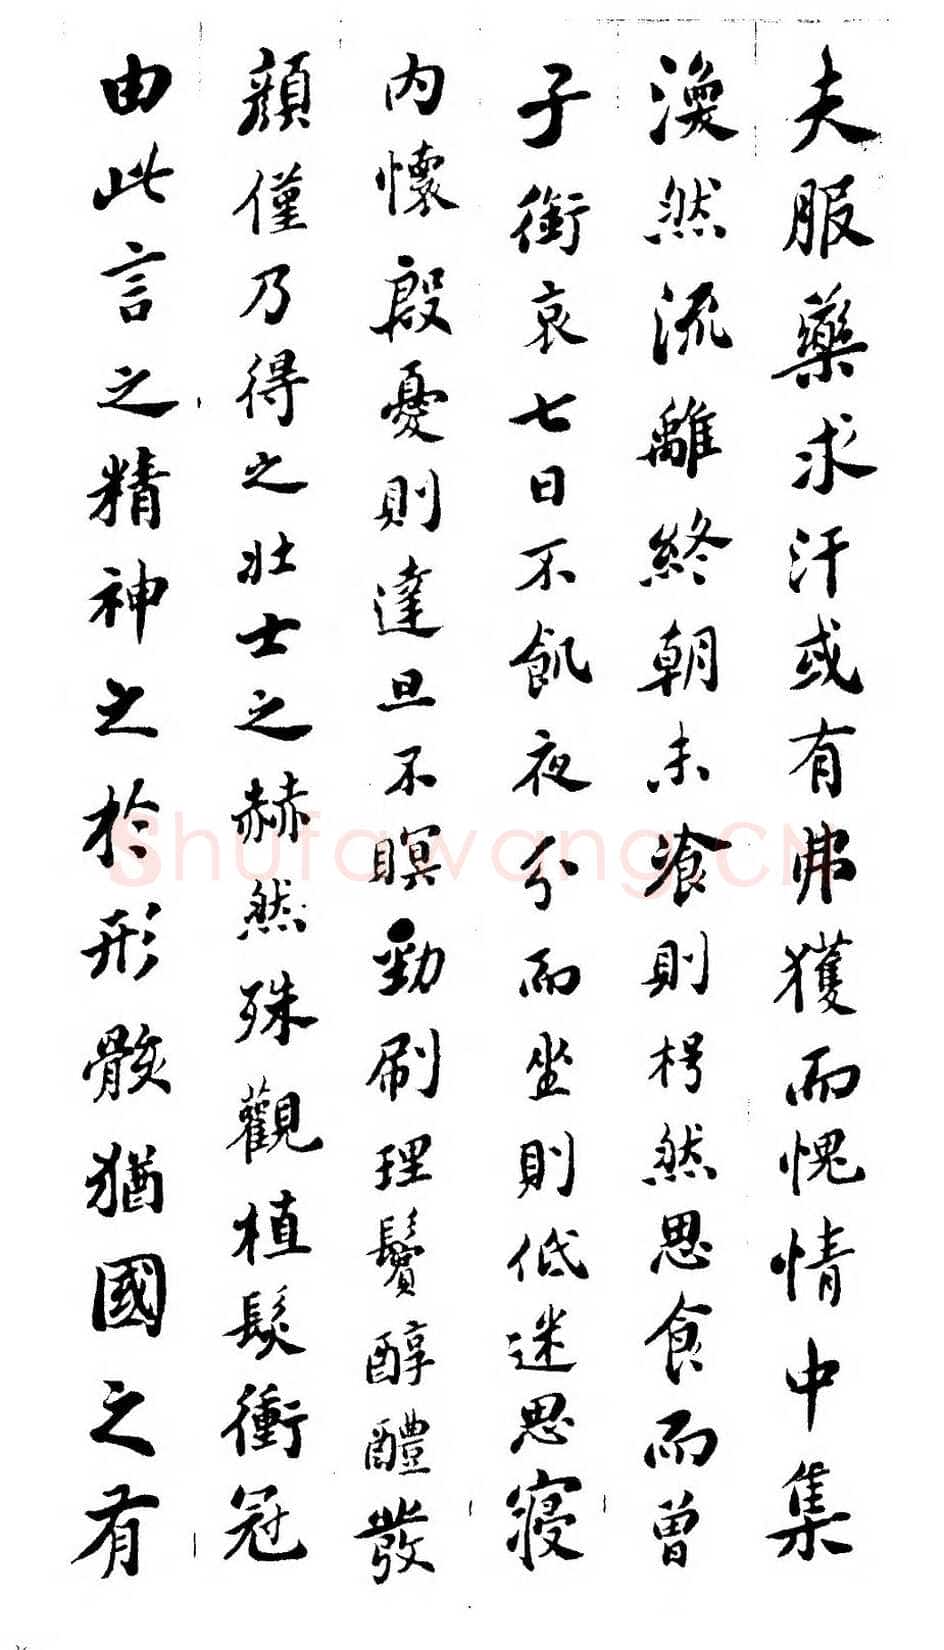 夫服藥求汗或有弗獲而愧情中集
渙然流離終朝未飡則枵然思食而曾
子銜哀七日不飢夜分而坐則低迷思寢
內懷殷憂則達旦不瞑勁刷理鬢醇醴發
顏僅乃得之壯士之赫然殊觀植髮衝冠
由此言之精神之於形骸猶國之有
Shufawang.CN